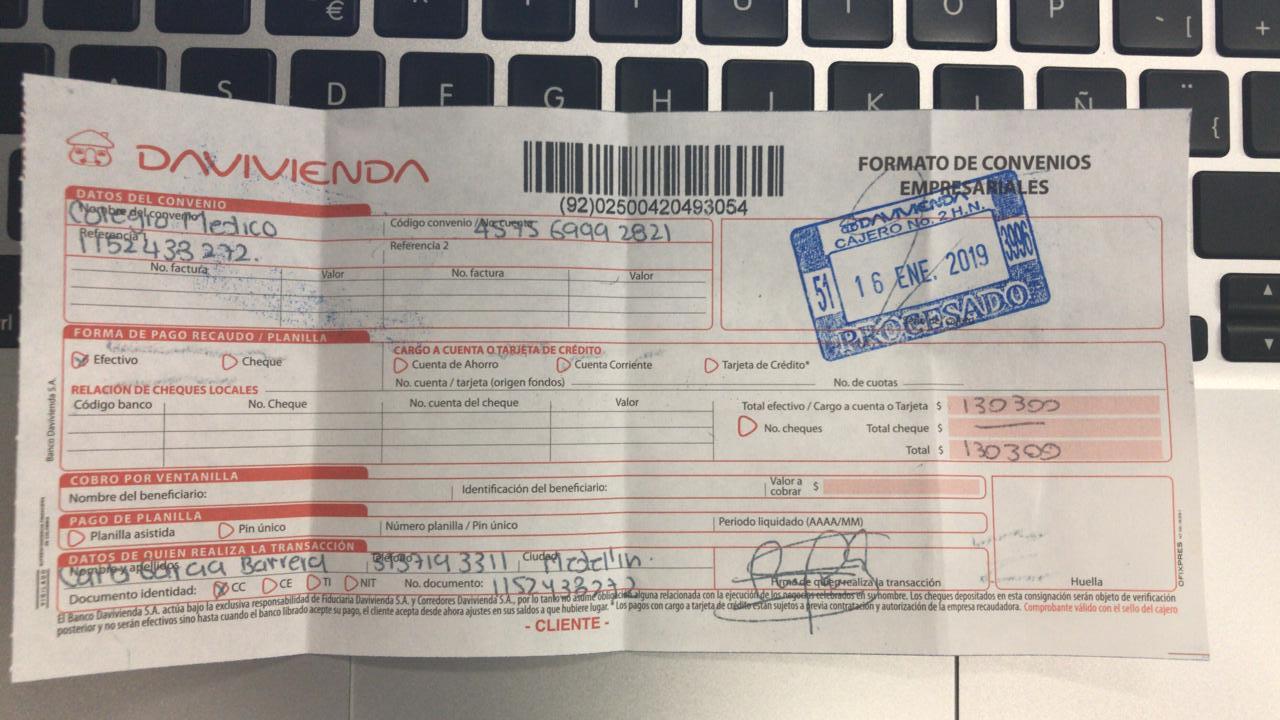 DAVIVIENDA
(92)02500420493054
FORMATO DE CONVENIOS
EMPRESARIALES
DATOS DEL CONVENIO
Nombre del convenio
Colegio Medico
Código convenio / No. cuenta
4575 6999 2821
Referencia 1
1152433272.
Referencia 2
No. factura Valor No. factura Valor
DAVIVIENDA
CAJERO No. 2 H.N.
51 16 ENE. 2019 3996
PROCESADO
FORMA DE PAGO RECAUDO / PLANILLA
Efectivo Cheque
CARGO A CUENTA O TARJETA DE CRÉDITO
Cuenta de Ahorro Cuenta Corriente Tarjeta de Crédito*
No. cuenta / tarjeta (origen fondos) No. de cuotas
RELACIÓN DE CHEQUES LOCALES
Código banco No. Cheque No. cuenta del cheque Valor
Total efectivo / Cargo a cuenta o Tarjeta $ 130300
No. cheques Total cheque $
Total $ 130300
COBRO POR VENTANILLA
Nombre del beneficiario: Identificación del beneficiario: Valor a cobrar $
PAGO DE PLANILLA
Planilla asistida Pin único Número planilla / Pin único Periodo liquidado (AAAA/MM)
DATOS DE QUIEN REALIZA LA TRANSACCIÓN
Nombre y apellidos Teléfono Ciudad
Garcia Barrera 3137193311 Medellin.
Documento identidad: CC CE TI NIT No. documento: 1152433272
Firma de quien realiza la transacción
Huella
El Banco Davivienda S.A. actúa bajo la exclusiva responsabilidad de Fiduciaria Davivienda S.A. y Corredores Davivienda S.A., por lo tanto no asume obligación alguna relacionada con la ejecución de los negocios celebrados en su nombre. Los cheques depositados en esta consignación serán objeto de verificación
posterior y no serán efectivos sino hasta cuando el banco librado acepte su pago, el cliente acepta desde ahora ajustes en sus saldos a que hubiere lugar. * Los pagos con cargo a tarjeta de crédito están sujetos a previa contratación y autorización de la empresa recaudadora. Comprobante válido con el sello del cajero
- CLIENTE -
Banco Davivienda S.A.
VIGILADO
OFIXPRES
€
S D F G H J K L Ñ